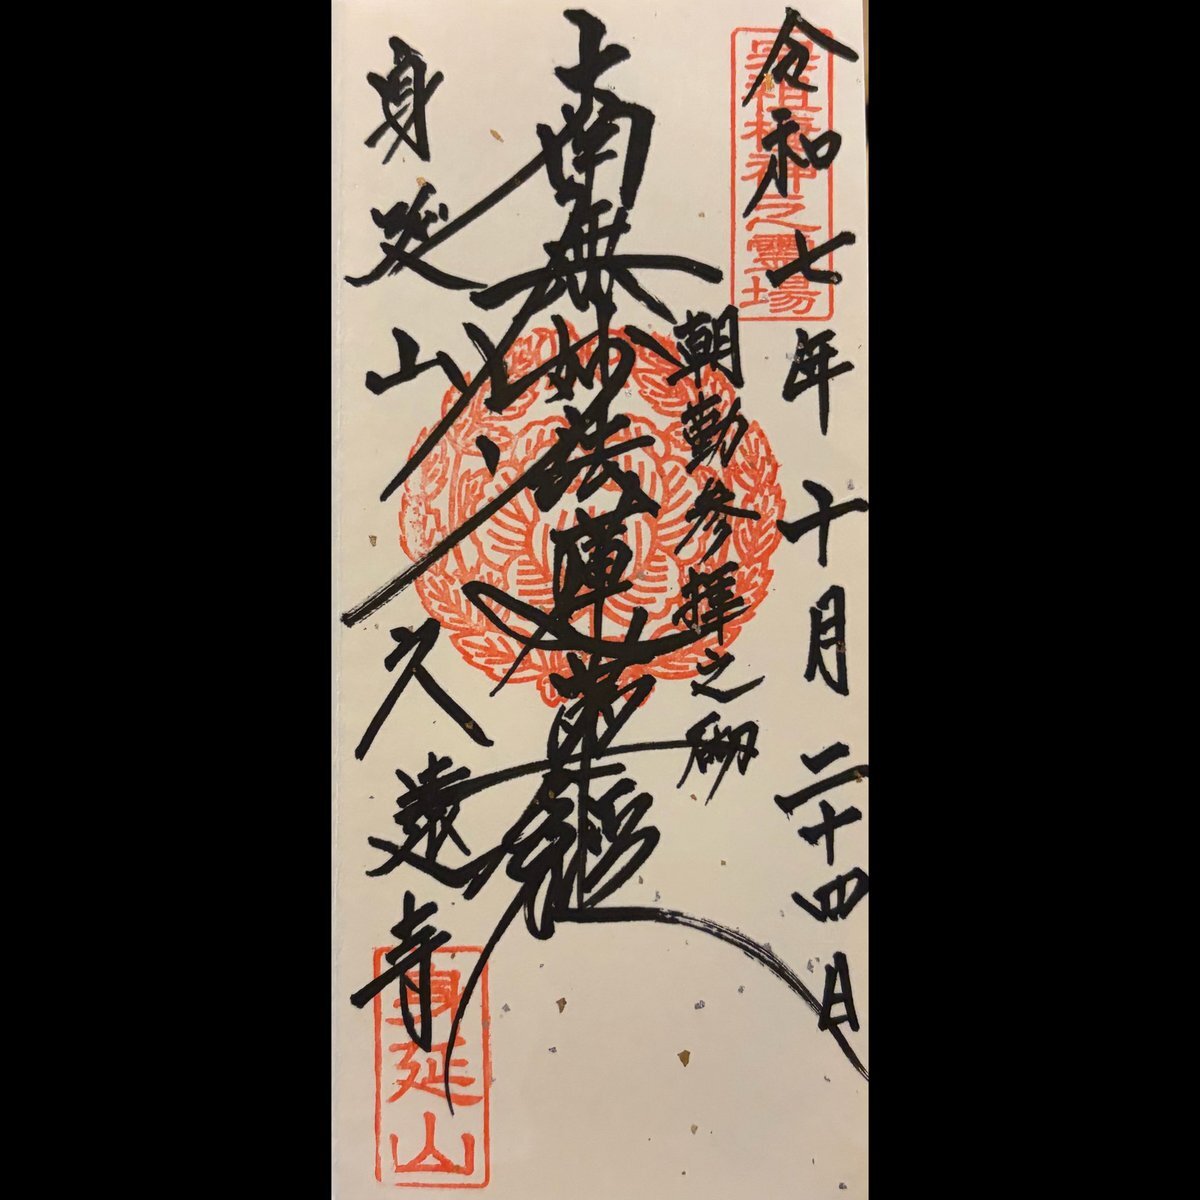 令和七年十月二十四日
宗祖棲神之霊場
朝勤参拝之砌
南無妙法蓮華経
身延山久遠寺
身延山